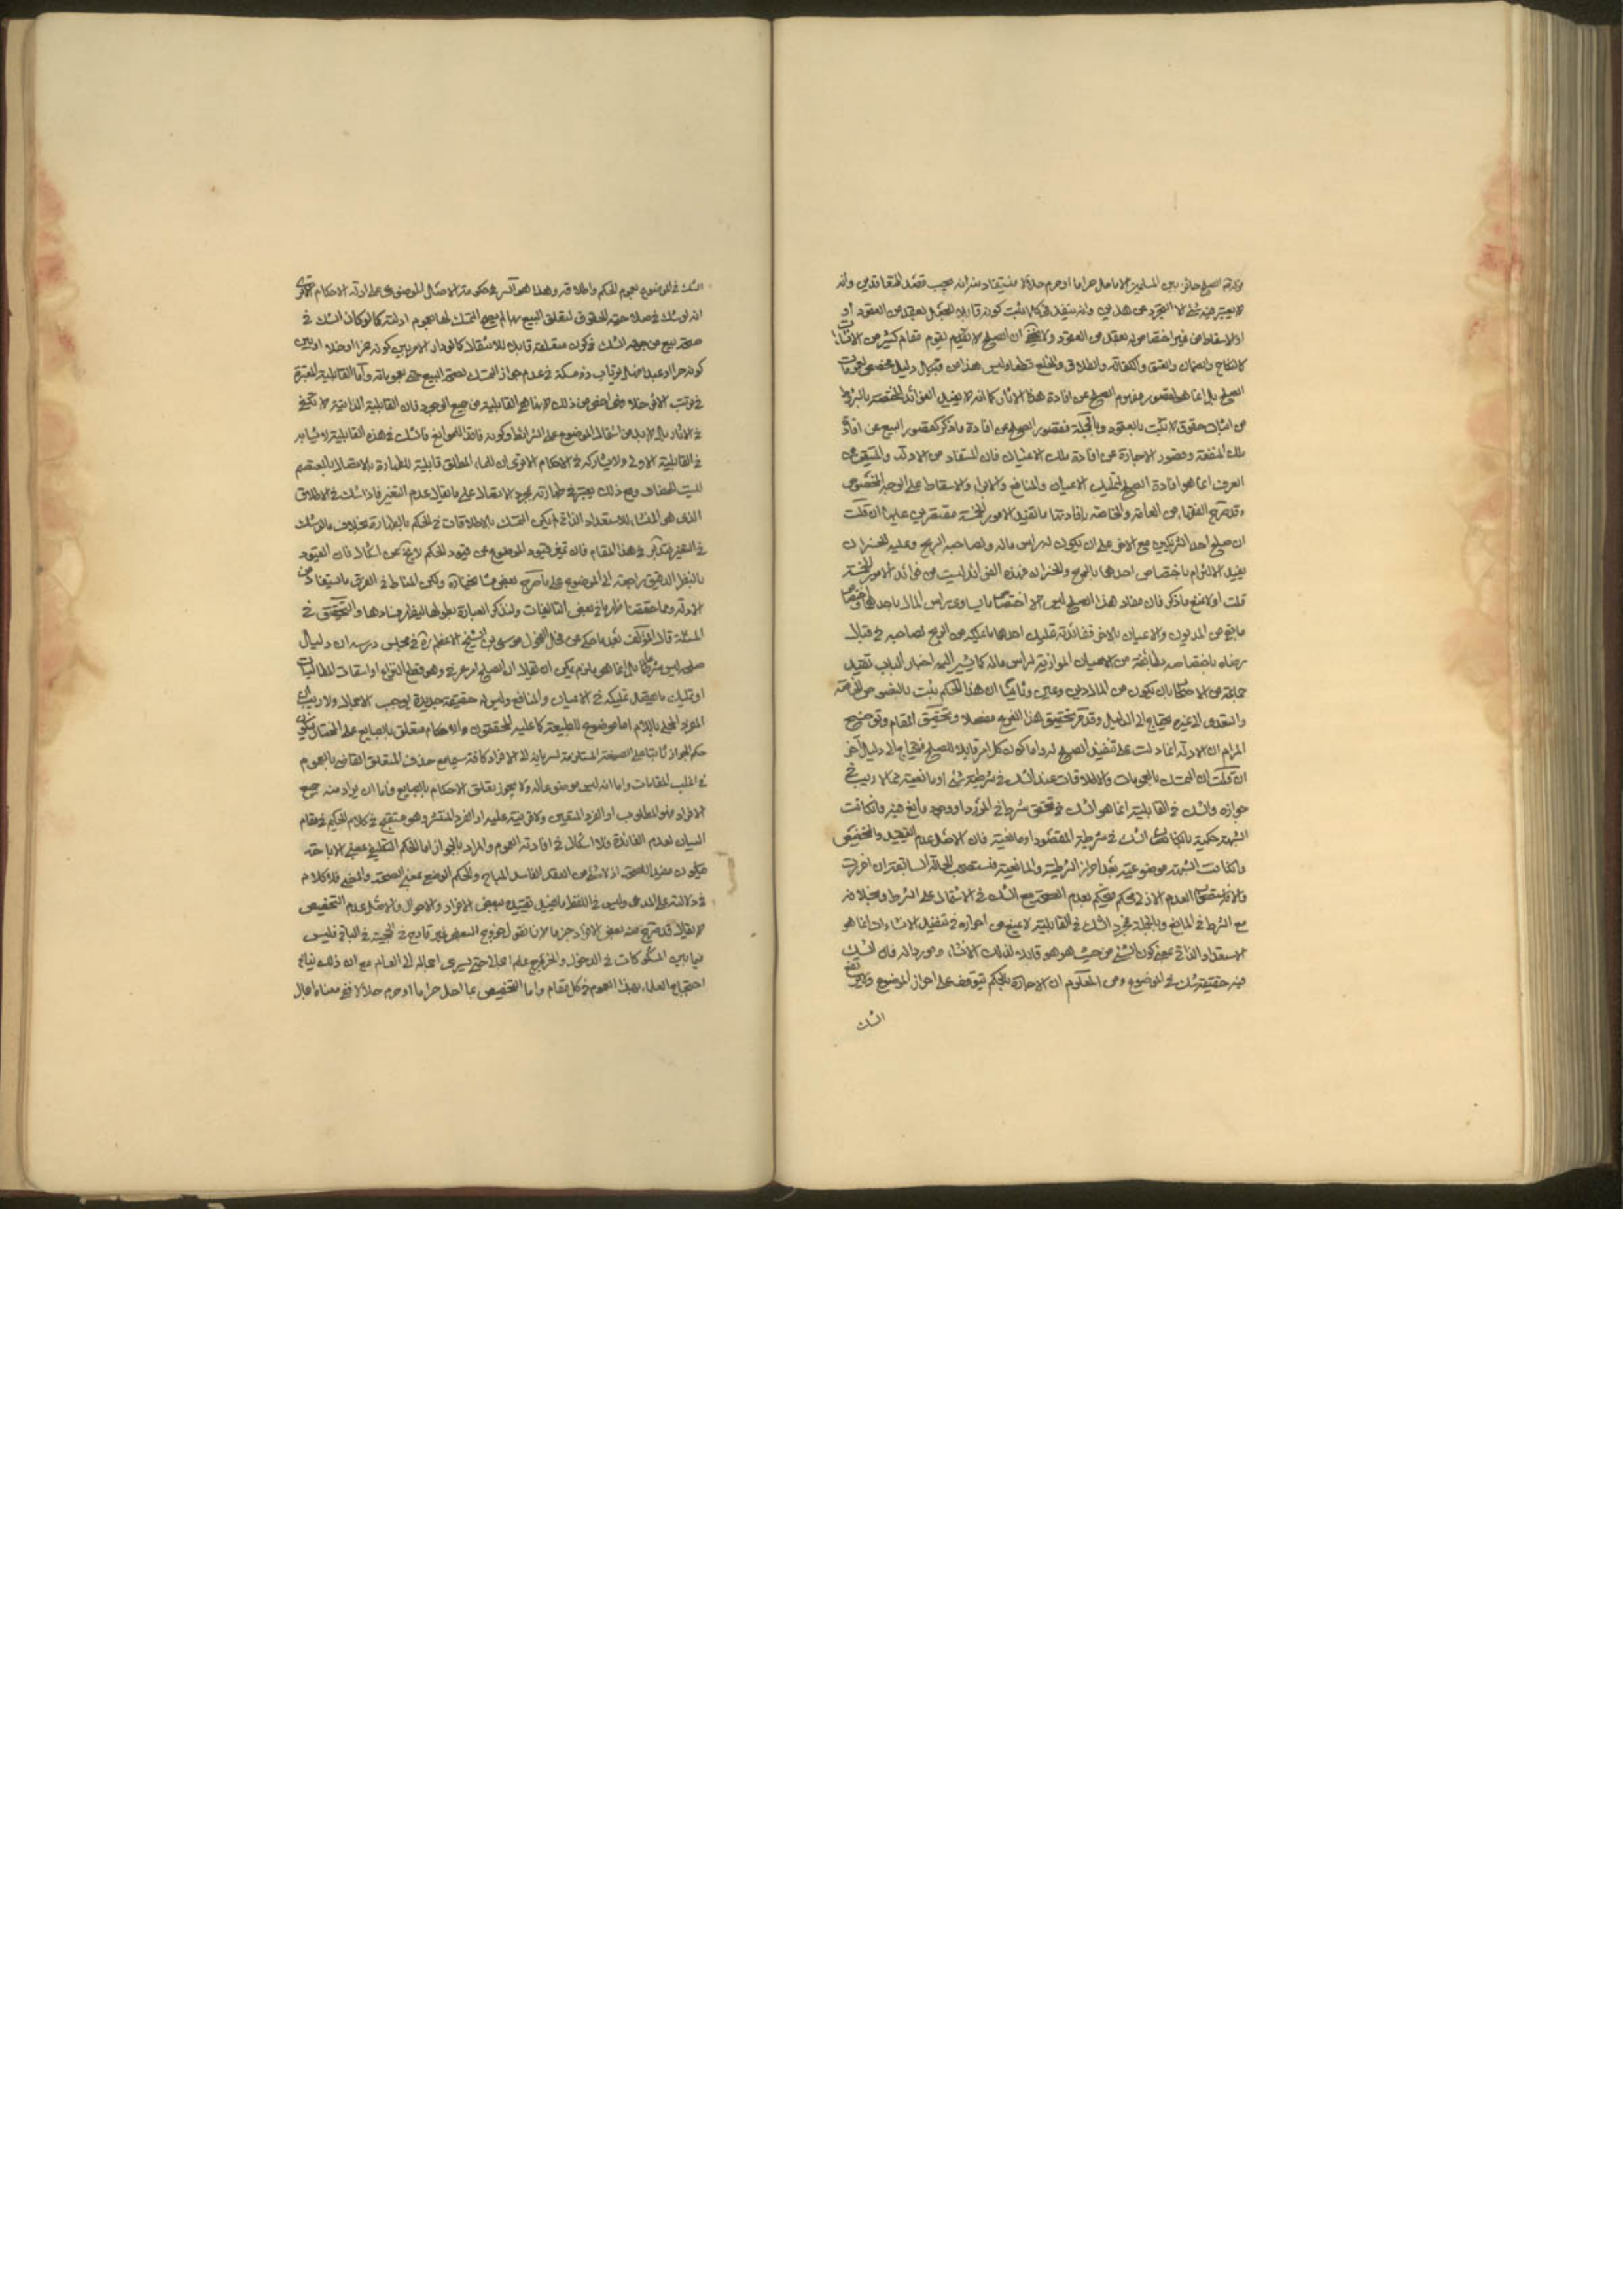 الصلح جائز بين المسلمين الا ما احل حراما او حرم حلالا يستفاد منه انه بحسب قصد المتعاقدين وانه
لا يعتبر فيه شئ الا التجرد عن هذين وانه ينفذ في كلما يثبت كونه قابلا
من غير اختصاص له بعقد من العقود ولا يخفى ان الصلح لا يقوم مقام كثير من الانشاءات
كالنكاح والضمان والعتق والكفالة والطلاق والخلع قطعا وليس هذا من قبيل دليل مخصص لعمومات
الصلح بل انما هو لقصور مفهوم الصلح عن افادة هذا الاثار كما انه لا يفيد الفوائد المختصة بالشروط
من اثبات حقوق لا تثبت بالعقود وبالجملة فقصور الصلح عن افادة ما ذكر كقصور البيع عن افادة
ملك المنفعة وقصور الاجارة عن افادة ملك الاعيان فان المستفاد من الادلة والمتيقن من
العرف انما هو افادة الصلح لتمليك الاعيان والمنافع والابراء والاسقاط على الوجه المخصوص
وقد صرح الفقهاء من العامة والخاصة بافادتها ما تفيد الامور الخمسة مقتصرين عليها ان قلت
ان صلح احد الشريكين مع الاخر على ان يكون له راس ماله ولصاحبه الربح وعليه الخسران
يفيد الالتزام باختصاص احدهما بالربح والخسران وهذه الفوائد ليست من فوائد الامور الخمسة
قلت اولا نمنع ما ذكر فان مفاد هذا الصلح ليس الا اختصاص ما يساوي راس المال باحدهما واختصاص
ما بقي من الديون والاعيان بالاخر ففائدته تمليك احدهما ما يملكه من الربح لصاحبه في قبال
رضاه باختصاصه بطائفة من الاعيان الموازية لراس ماله كما يشير اليه اخبار الباب تقييد
جماعة من الاصحاب بان يكون من المال دين وعين وثانيا ان هذا الحكم يثبت بالنصوص الخاصة
والتعدي الى غيره يحتاج الى الدليل وقد مر تحقيق هذا الفرع مفصلا وتحقيق المقام وتوضيح
المرام ان الادلة انما دلت على تنفيذ الصلح له واما كون كل امر قابلا للصلح فيحتاج الى دليل آخر
ان قلت ان التمسك بالعمومات والاطلاقات عند الشك في شرطية شئ او مانعيته مما لا ريب في
جوازه والشك في القابلية انما هو الشك في تحقق شرط في المورد او وجود مانع فيه فان كانت
الشبهة حكمية الشك في شرطية المفقود او مانعيته فان الاصل عدم التقييد والتخصيص
وان كانت الشبهة موضوعية بعد احراز الشرطية والمانعية فنستصحب الحالة السابقة ان احرزت
والا فاستصحاب العدم الازلي محكم فيحكم بعدم الصحة مع الشك في الاشتمال على الشرط وبخلافه
مع الشرط في المانع وبالجملة مجرد الشك في القابلية لا يمنع من احرازه في تنفيذ الانشاءات انما هو
الاستعداد الذاتي بمعنى كون الشئ من حيث هو هو قابلا لذلك الانشاء وموردا له فان الشك
فيه حقيقة شك في الموضوع ومن المعلوم ان الاحاطة بالحكم تتوقف على احراز الموضوع ولا يرتفع
الشك
الشك في الموضوع بعموم الحكم واطلاقه وهذا هو السر في حكومة الاصل الموضوعي على ادلة الاحكام الا ترى
انه لو شك في صلاحية الحقوق لتعلق البيع بها لم يصح التمسك لها بعموم ادلته كما لو كان الشك في
صحة بيع من جهة الشك في كون متعلقه قابلا للانتقال كما لو دار الامر بين كونه خمرا او خلا او بين
كونه حرا او عبدا فلا يرتاب ذو مسكة في عدم جواز التمسك لصحة البيع في بعموماته واما القابلية المعتبرة
في ترتب الاثر خلا فهي اخص من ذلك لانها هي القابلية من جميع الوجوه فان القابلية الذاتية لا تكفي
في الاثار بل لا بد من اشتمال الموضوع على الشرائط وكونه فاقدا للموانع فالشك في هذه القابلية لا ينافي
في القابلية الاولى ولا يشاركه في الاحكام الا ترى ان للماء المطلق قابلية للطهارة بالاتصال بالمعتصم
ليست للمضاف ومع ذلك يعتبر في طهارته بمجرد الاتصال على ما يقال عدم التغير فاذا شك في الاطلاق
الذي هو المنشأ للاستعداد الذاتي لم يكن التمسك بالاطلاقات في الحكم بالطهارة بخلاف ما لو شك
في التغير فتدبر في هذا المقام فان تميز قيود الموضوع عن قيود الحكم لا يخلو عن اشكال فان القيود
بالنظر الدقيق راجعة الى الموضوع على ما صرح بعض مشايخنا ولكن المناط في الفرق ما يستفاد من
الادلة ومما حققنا ظهر ما في بعض التاليفات ولنذكر العبارة بطولها ليظهر فسادها والتحقيق في
المسئلة قال المؤلف بعد ما حكى عن فحل الفحول موسى بن الشيخ الاعظم ره في مجلس درسه ان دليل
صلح ليس مشرعا بل انما هو ملزم يمكن ان يقال ان الصلح امر عرفي وهو قطع النزاع او اسقاط المطالبات
او تمليك ما يحتمل تمليكه في الاعيان والمنافع وليس له حقيقة جديدة يوجب الاجمال ولا ريب ان
المفرد المحلى باللام اما موضوع للطبيعة كما عليه المحققون والاحكام متعلق بالطبايع على المختار فيكون
حكم الجواز ثابتا على الصيغة المستلزمة لسريانه الى الافراد كافة سيما مع حذف المتعلق القاضي بالعموم
في اغلب المقامات واما انه ليس موضوعا له ولا يجوز تعلق الاحكام بالطبايع فاما ان يراد منه جميع
الافراد فهو المطلوب او الفرد المعين ولا قرينة عليه او الفرد المنتشر وهو مستقبح في كلام الحكيم في مقام
البيان لعدم الفائدة فلا اشكال في افادته العموم والمراد بالجواز اما الحكم التكليفي بمعنى الاباحة
فيكون مفيد الصحة اذ لا شئ من العقد الفاسد المباح والحكم الوضعي بمعنى الصحة والمضي فلا كلام
في دلالته على المدعى وليس في اللفظ ما يفيد تقييده ببعض الافراد والاحوال والاصل عدم التخصيص
لا يقال قد خرج منه بعض الافراد جزما لانا نقول خروج البعض غير قادح في الحجية في الباقي فليس
فيما بين المشكوكات في الدخول والخروج علم اجمالي حتى يسري اجماله الى العام مع ان ذلك ينافي
احتجاج العلماء بهذا العموم في كل مقام واما التخصيص بما احل حراما او حرم حلالا ففي معناه اجمال